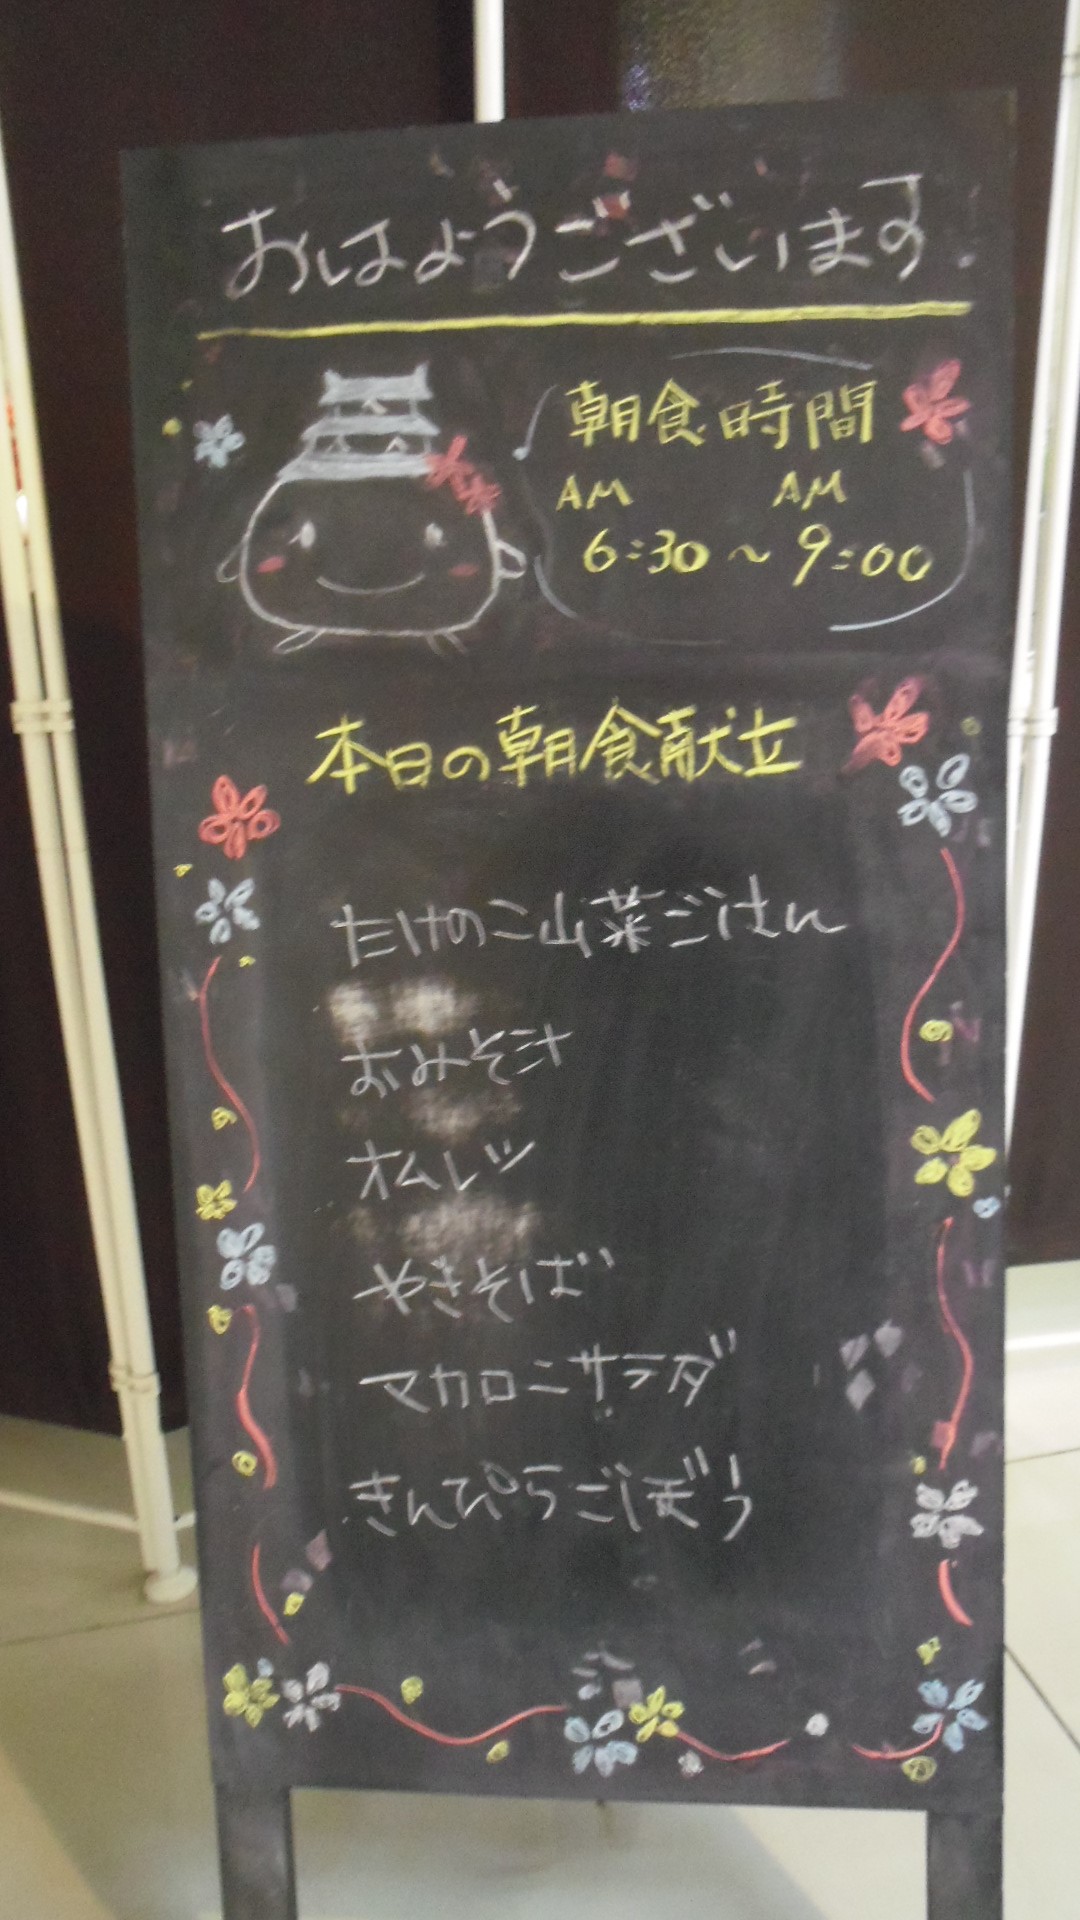 おはようございます
朝食時間
AM AM
6:30～9:00
本日の朝食献立
たけのこ山菜ごはん
おみそ汁
オムレツ
やきそば
マカロニサラダ
きんぴらごぼう